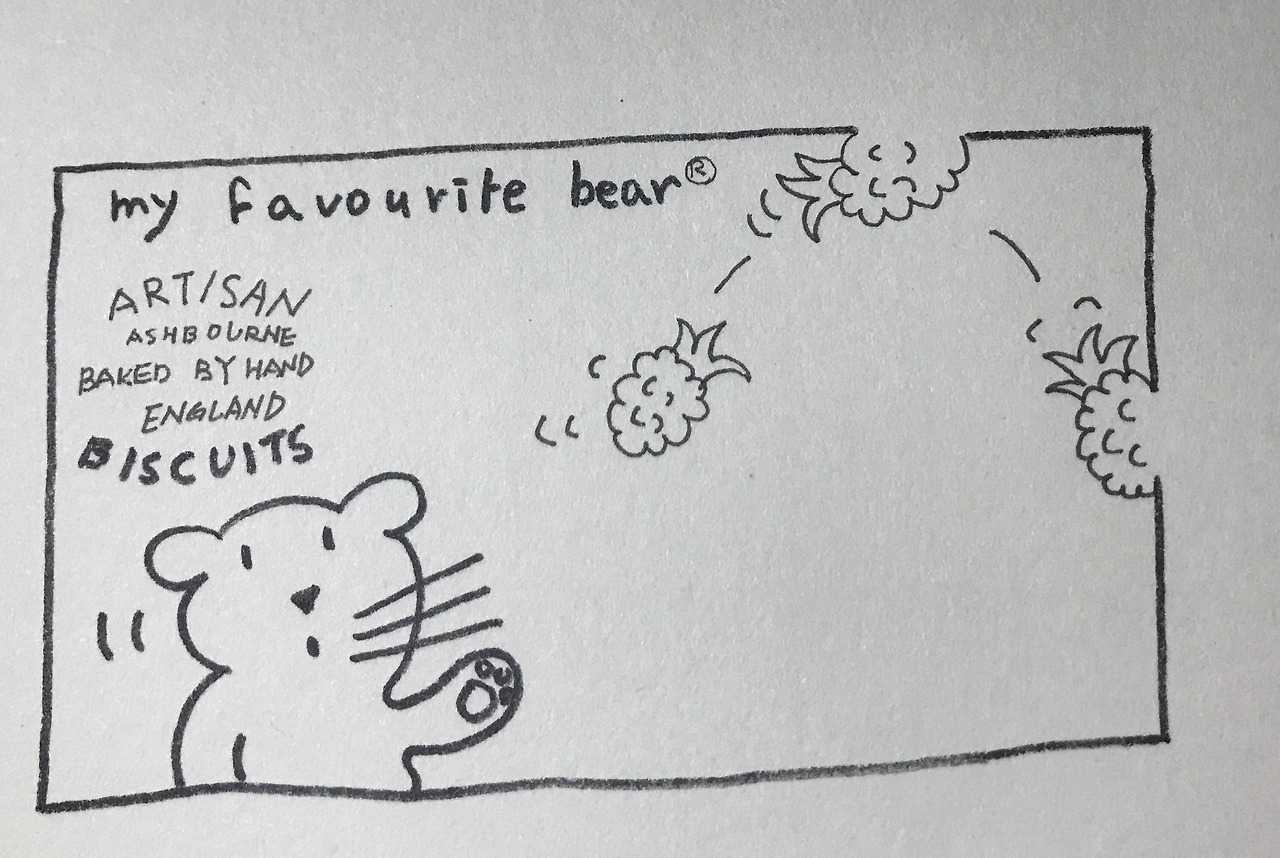 my favourite bear®
ARTISAN
ASHBOURNE
BAKED BY HAND
ENGLAND
BISCUITS